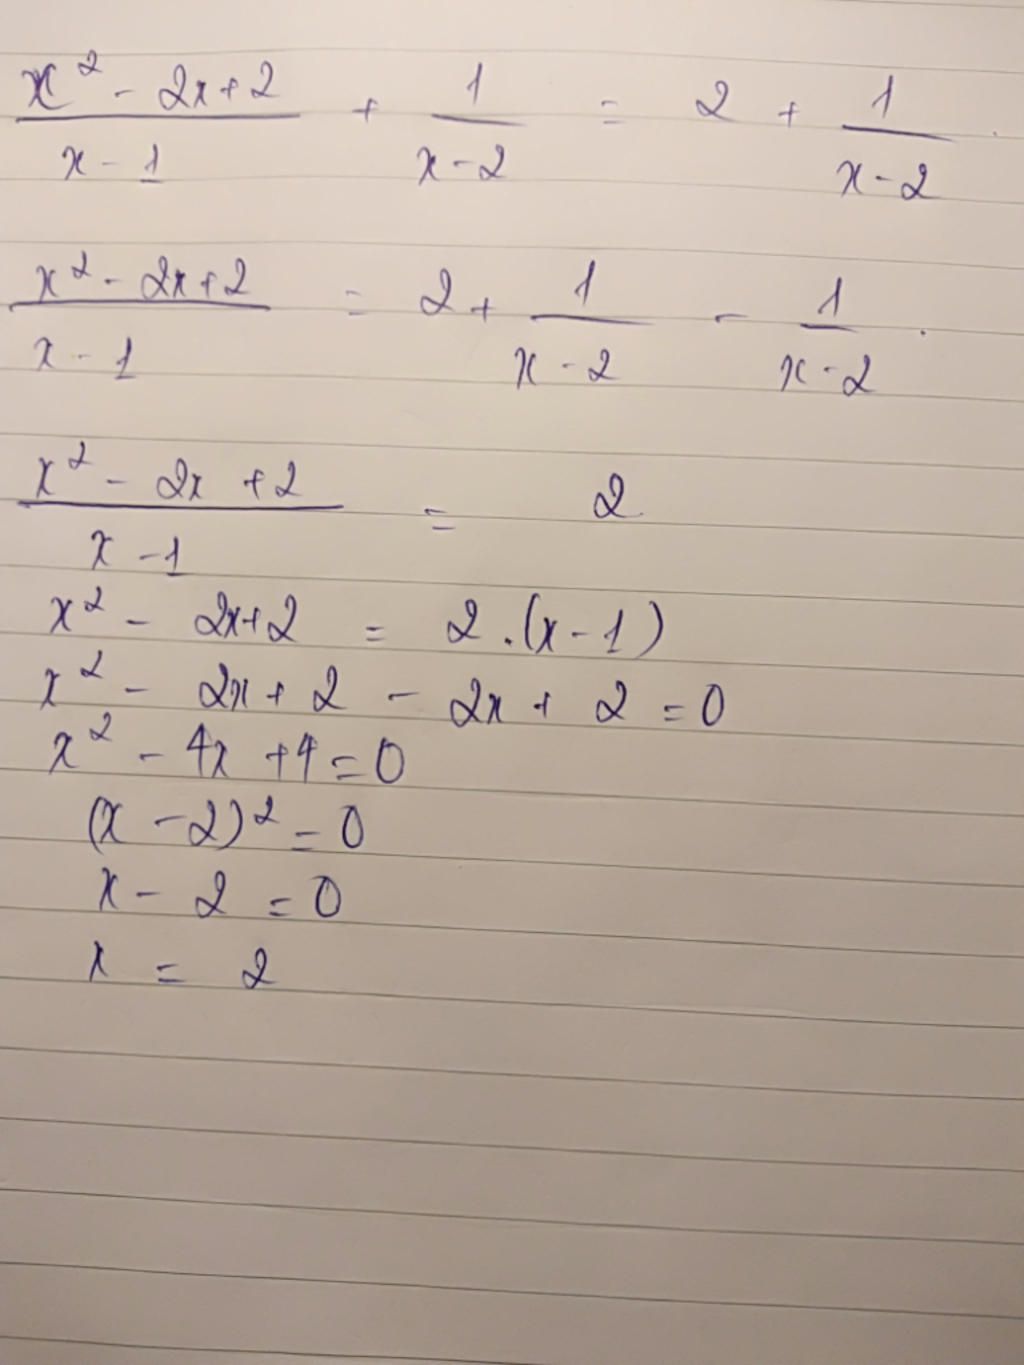 (x² - 2x + 2)/(x - 1) + 1/(x - 2) = 2 + 1/(x - 2).
(x² - 2x + 2)/(x - 1) = 2 + 1/(x - 2) - 1/(x - 2).
(x² - 2x + 2)/(x - 1) = 2
x² - 2x + 2 = 2.(x - 1)
x² - 2x + 2 - 2x + 2 = 0
x² - 4x + 4 = 0
(x - 2)² = 0
x - 2 = 0
x = 2